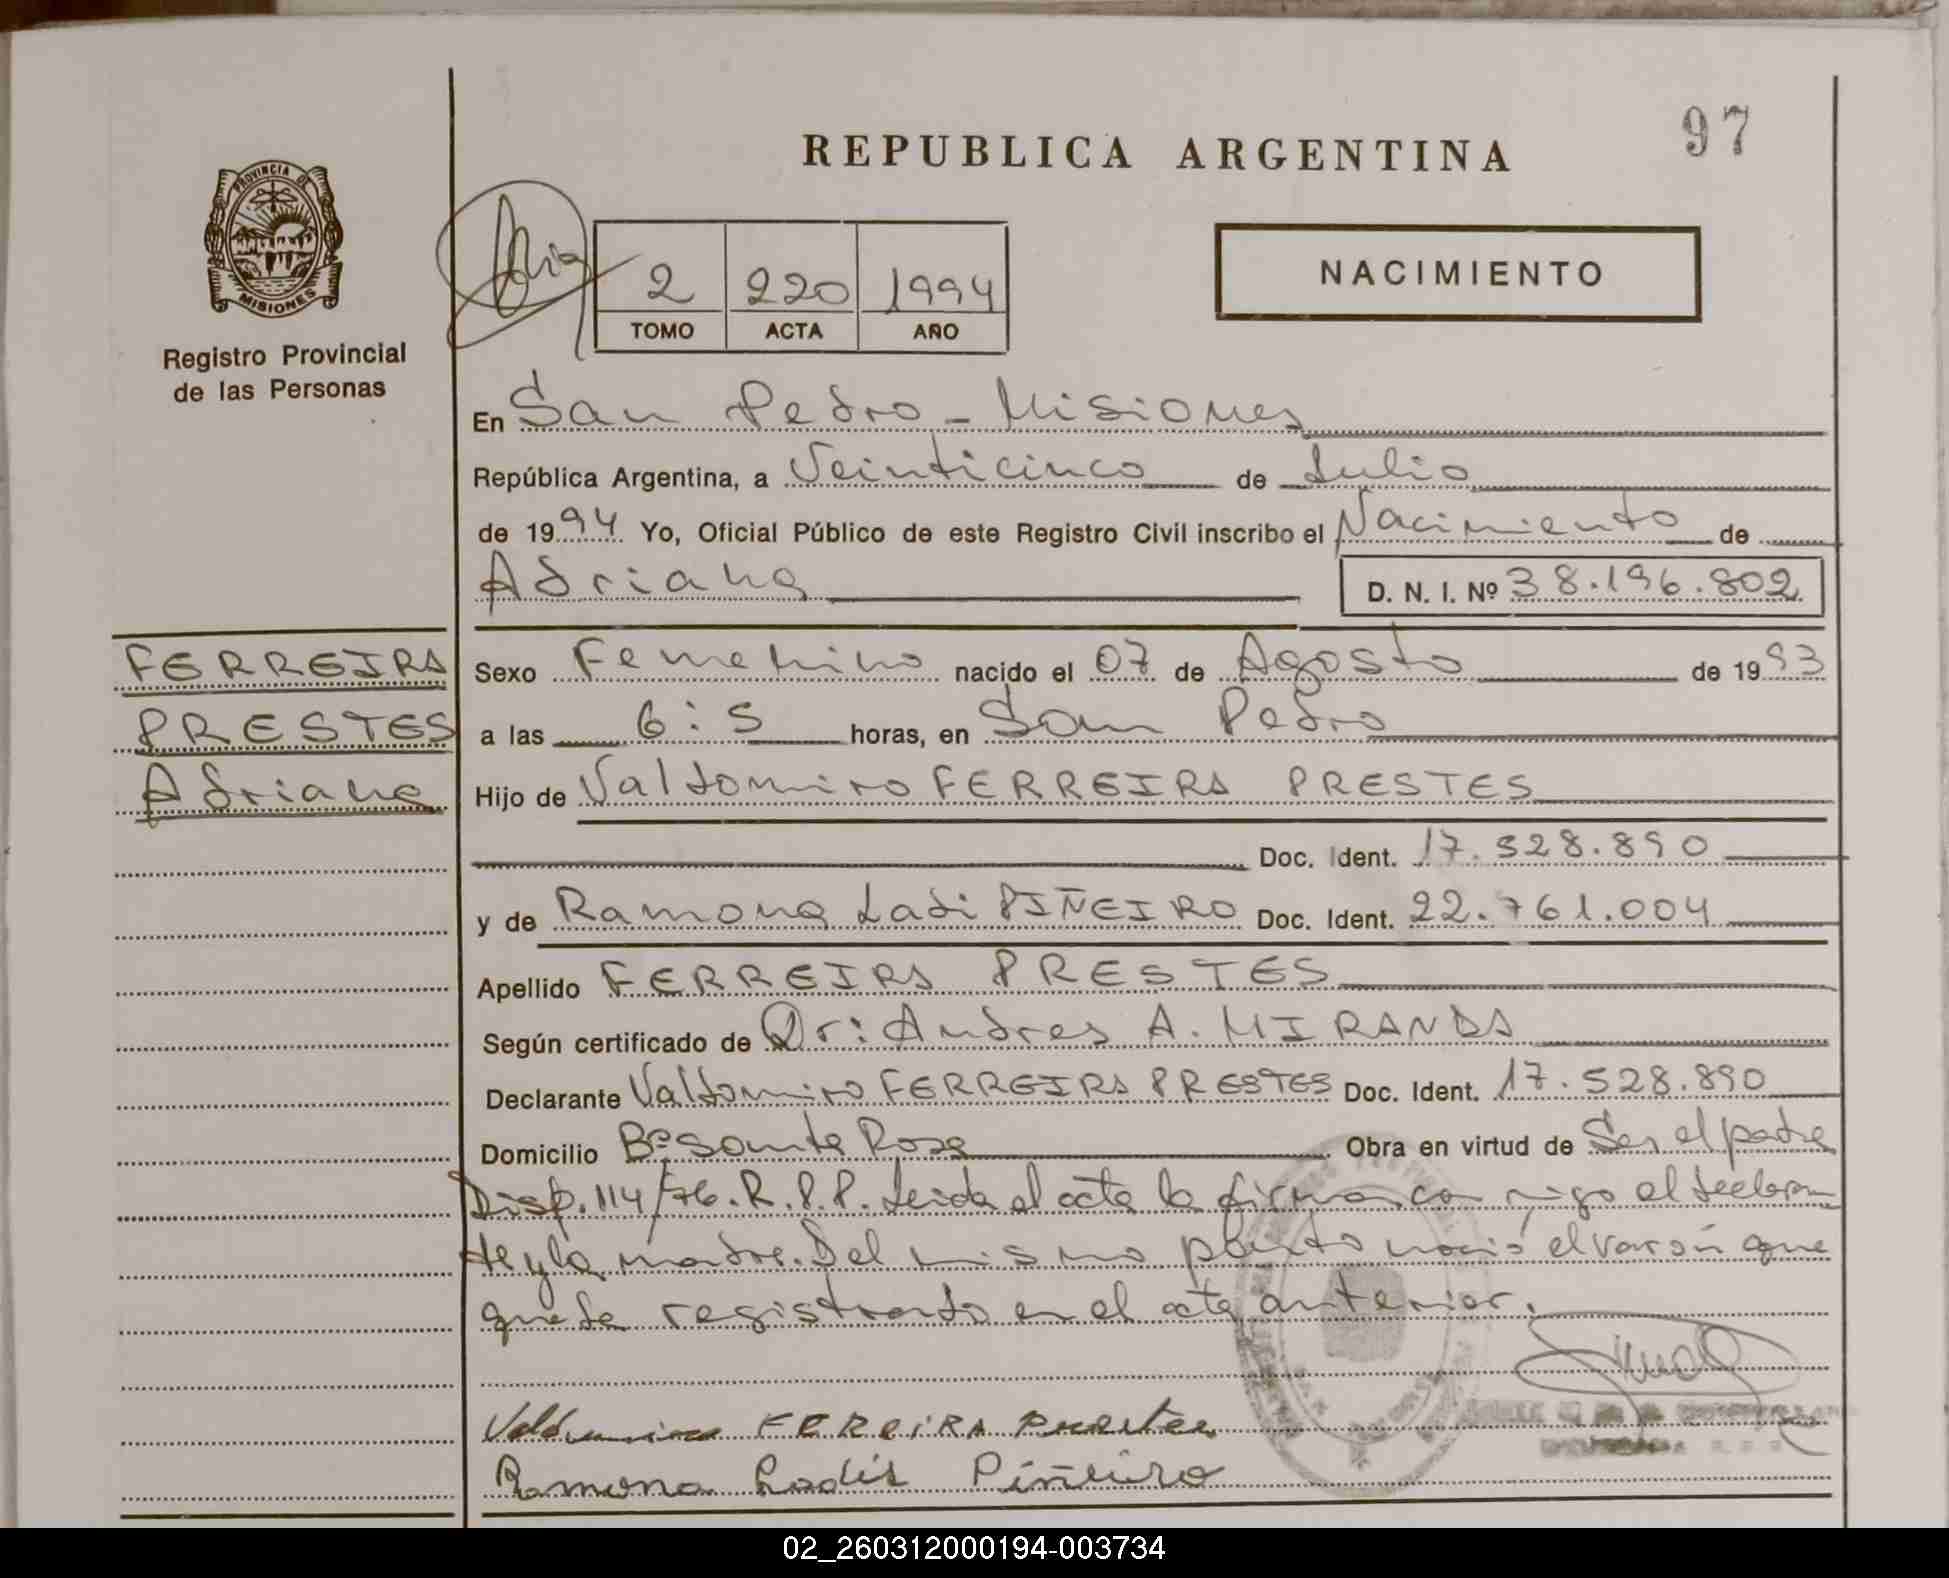 97
REPUBLICA ARGENTINA
PROVINCIA DE
MISIONES
Registro Provincial
de las Personas
2 220 1994
TOMO ACTA AÑO
NACIMIENTO
En San Pedro - Misiones
República Argentina, a Veinticinco de Julio
de 1994 Yo, Oficial Público de este Registro Civil inscribo el Nacimiento de
Adriana D. N. I. Nº 38.196.802
FERREIRA
PRESTES
Adriana
Sexo Femenino nacido el 07 de Agosto de 1993
a las 6:5 horas, en San Pedro
Hijo de Valdomiro FERREIRA PRESTES
Doc. Ident. 17.528.890
y de Ramona Ladi PIÑEIRO Doc. Ident. 22.761.004
Apellido FERREIRA PRESTES
Según certificado de Dr: Andres A. MIRANDA
Declarante Valdomiro FERREIRA PRESTES Doc. Ident. 17.528.890
Domicilio Bº Santa Rosa Obra en virtud de Ser el padre
Disp. 114/76. R.P.P. Leida el acta la firman conmigo el declaran
te y la madre. Del mismo parto nació el varón que
queda registrado en el acta anterior.
Valdomiro FEREiRA Prestes
Ramona Ladis Piñeiro
02_260312000194-003734